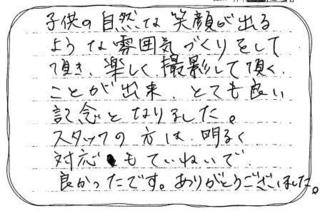 子供の自然な笑顔が出る
ような雰囲気づくりをして
頂き、楽しく撮影して頂く
ことが出来、とても良い
記念となりました。
スタッフの方は明るく
対応もていねいで
良かったです。ありがとうございました。